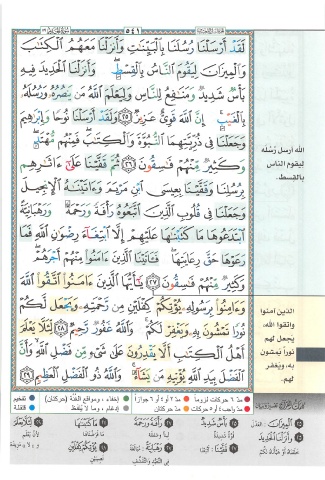 ٥٤١
لَقَدْ أَرْسَلْنَا رُسُلَنَا بِالْبَيِّنَتِ وَأَنزَلْنَا مَعَهُمُ الْكِتَبَ
وَالْمِيزَانَ لِيَقُومَ النَّاسُ بِالْقِسْطِ وَأَنزَلْنَا الْحَدِيدَ فِيهِ
بَأْسٌ شَدِيدٌ وَمَنَفِعُ لِلنَّاسِ وَلِيَعْلَمَ اللَّهُ مَن يَنصُرُهُ وَرُسُلَهُ
بِالْغَيْبِ إِنَّ اللَّهَ قَوِيٌّ عَزِيزٌ ٢٥ وَلَقَدْ أَرْسَلْنَا نُوحًا وَإِبْرَهِيمَ
وَجَعَلْنَا فِي ذُرِّيَّتِهِمَا النُّبُوَّةَ وَالْكِتَبَ فَمِنْهُم مُّهْتَدٍ
وَكَثِيرٌ مِّنْهُمْ فَسِقُونَ ٢٦ ثُمَّ قَفَّيْنَا عَلَى ءَاثَرِهِم
بِرُسُلِنَا وَقَفَّيْنَا بِعِيسَى ابْنِ مَرْيَمَ وَءَاتَيْنَهُ الْإِنجِيلَ
وَجَعَلْنَا فِي قُلُوبِ الَّذِينَ اتَّبَعُوهُ رَأْفَةً وَرَحْمَةً وَرَهْبَانِيَّةً
ابْتَدَعُوهَا مَا كَتَبْنَهَا عَلَيْهِمْ إِلَّا ابْتِغَاءَ رِضْوَنِ اللَّهِ فَمَا
رَعَوْهَا حَقَّ رِعَايَتِهَا فَـَٔاتَيْنَا الَّذِينَ ءَامَنُوا مِنْهُمْ أَجْرَهُمْ
وَكَثِيرٌ مِّنْهُمْ فَسِقُونَ ٢٧ يَأَيُّهَا الَّذِينَ ءَامَنُوا اتَّقُوا اللَّهَ
وَءَامِنُوا بِرَسُولِهِ يُؤْتِكُمْ كِفْلَيْنِ مِن رَّحْمَتِهِ وَيَجْعَل لَّكُمْ
نُورًا تَمْشُونَ بِهِ وَيَغْفِرْ لَكُمْ وَاللَّهُ غَفُورٌ رَّحِيمٌ ٢٨ لِّئَلَّا يَعْلَمَ
أَهْلُ الْكِتَبِ أَلَّا يَقْدِرُونَ عَلَى شَيْءٍ مِّن فَضْلِ اللَّهِ وَأَنَّ
الْفَضْلَ بِيَدِ اللَّهِ يُؤْتِيهِ مَن يَشَاءُ وَاللَّهُ ذُو الْفَضْلِ الْعَظِيمِ ٢٩
الله أرسل رُسُله
ليقوم الناس
بالقسط.
الذين آمنوا
واتقوا الله،
يجعل لهم
نوراً يمشون
به، ويغفر
لهم.